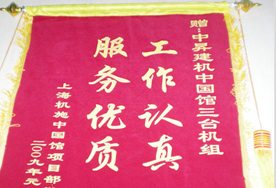 赠:中昇建机中国馆三台机组
工作认真
服务优质
上海机施中国馆项目部
二〇〇九年元